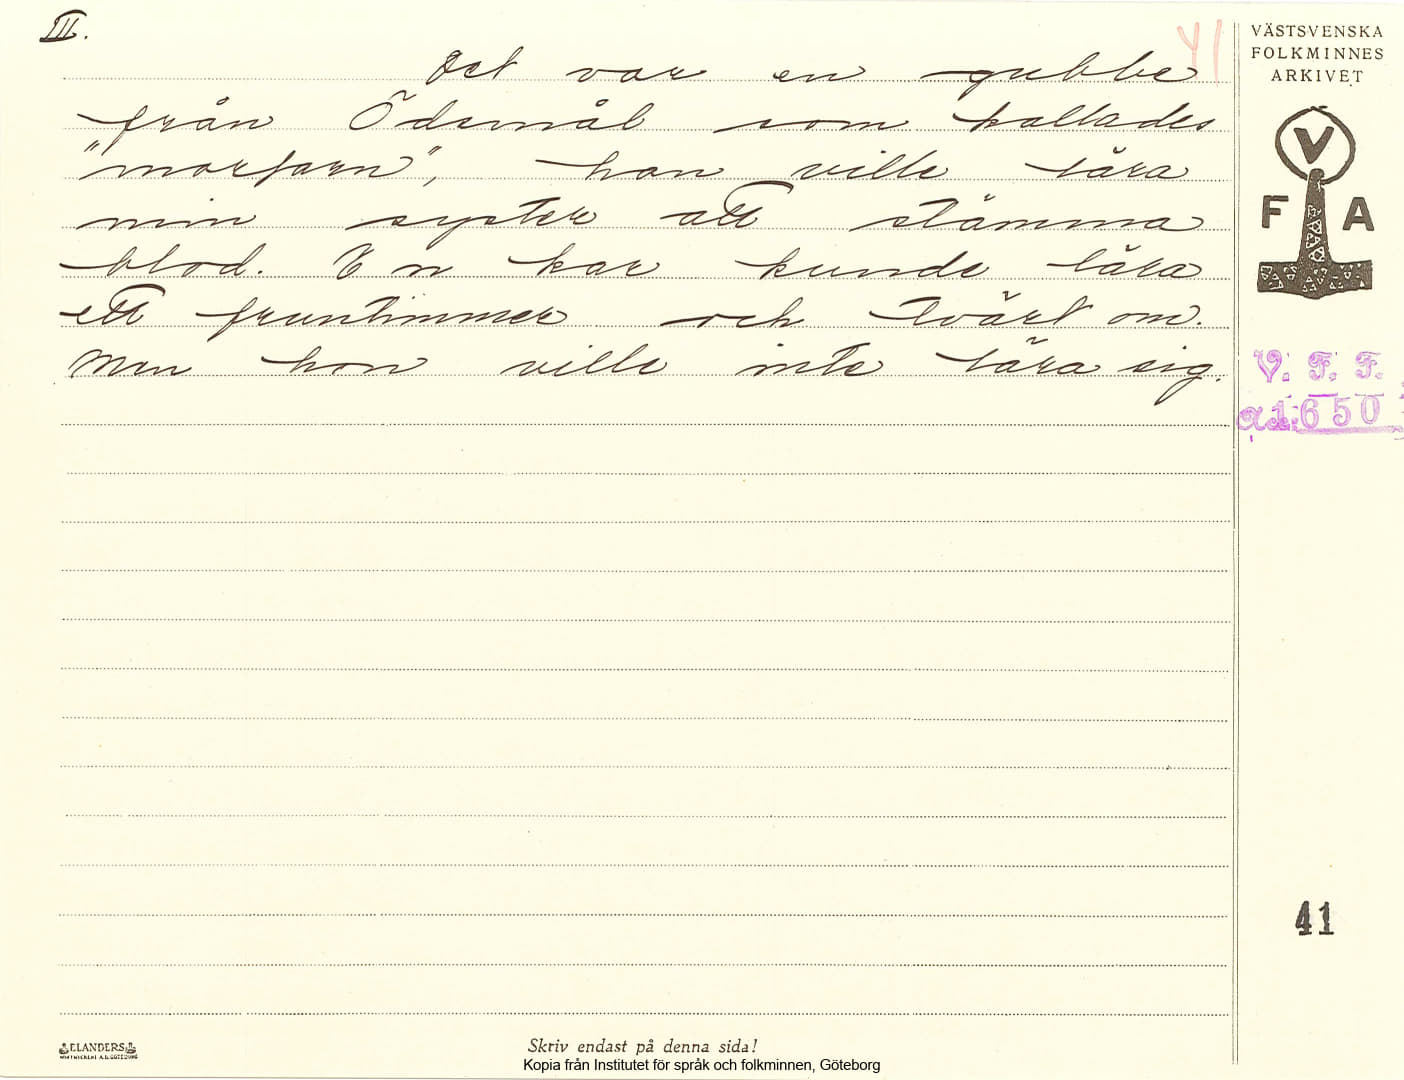 III.
41
Det var en gubbe
från Ödsmål som kallades
"morfarn", han ville lära
min syster att stämma
blod. En kar kunde lära
ett fruntimmer och tvärt om.
Men hon ville inte lära sig.
VÄSTSVENSKA
FOLKMINNES
ARKIVET
V
F A
V. F. F.
1650
41
ELANDERS
Skriv endast på denna sida!
Kopia från Institutet för språk och folkminnen, Göteborg